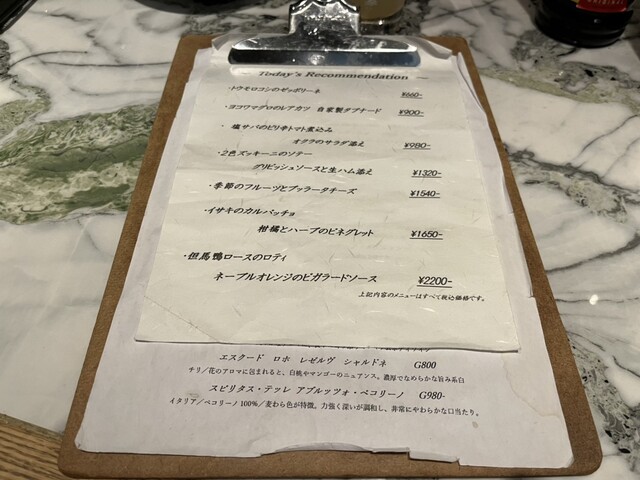 Today's Recommendation
・トウモロコシのゼッポリーネ ¥660-
・ヨコワマグロのレアカツ 自家製タプナード ¥900-
・塩サバのピリ辛トマト煮込み
オクラのサラダ添え ¥980-
・2色ズッキーニのソテー
グリビッシュソースと生ハム添え ¥1320-
・季節のフルーツとブッラータチーズ ¥1540-
・イサキのカルパッチョ
柑橘とハーブのビネグレット ¥1650-
・但馬鴨ロースのロティ
ネーブルオレンジのビガラードソース ¥2200-
上記内容のメニューはすべて税込価格です。
エスクード ロホ レゼルヴ シャルドネ G800
チリ／花のアロマに包まれると、白桃やマンゴーのニュアンス。濃厚でなめらかな旨み系白
スピリタス・テッレ アブルッツォ・ペコリーノ G980-
イタリア／ペコリーノ100%／麦わら色が特徴。力強く深いが調和し、非常にやわらかな口当たり。